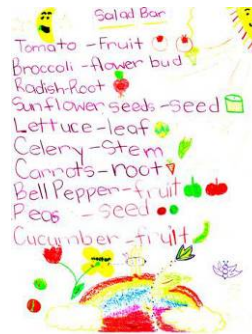 Salad Bar
Tomato - Fruit
Broccoli - flower bud
Radish - Root
Sunflower seeds - seed
Lettuce - leaf
Celery - Stem
Carrots - root
Bell Pepper - fruit
Peas - seed
Cucumber - fruit